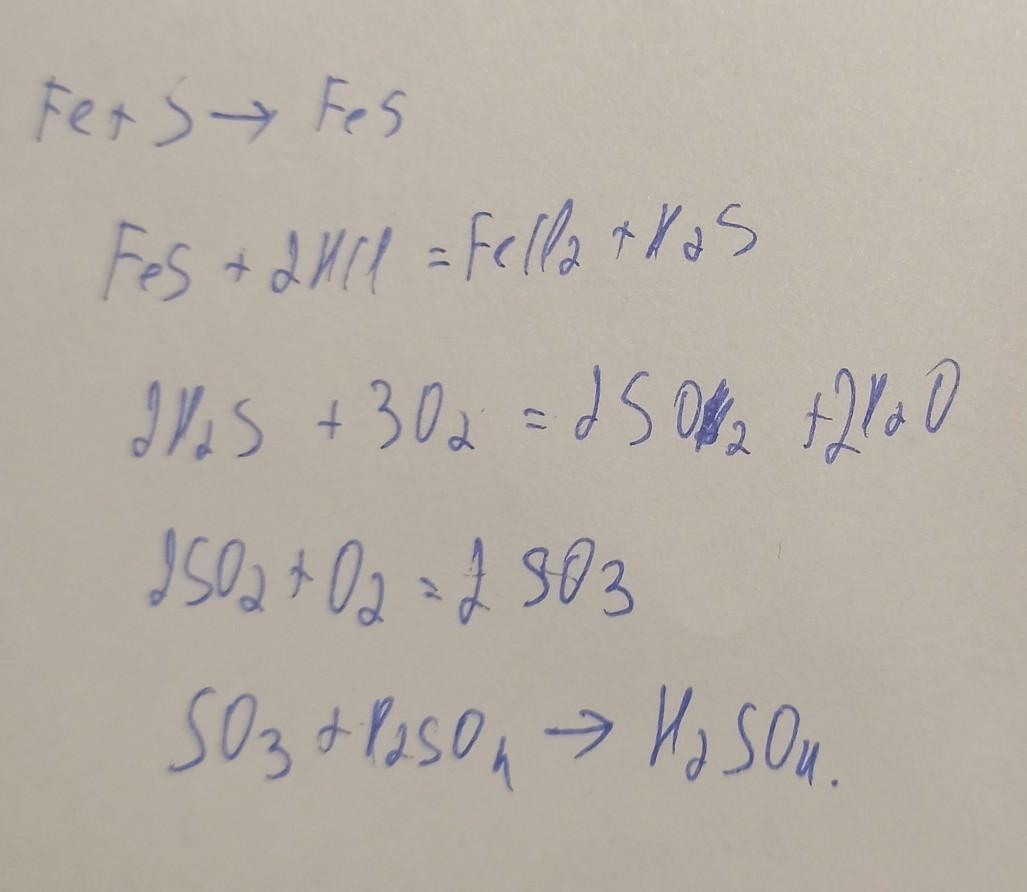 Fe + S → FeS
FeS + 2HCl = FeCl₂ + H₂S
2H₂S + 3O₂ = 2SO₂ + 2H₂O
2SO₂ + O₂ = 2SO₃
SO₃ + H₂SO₄ → H₂SO₄.